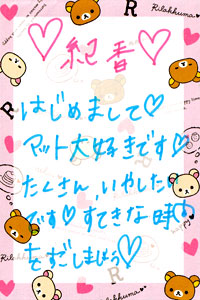 Rilakkuma
R
♡紀香♡
はじめまして♡
マット大好きです♡
たくさん、いやしたい
です♡すてきな時間
をすごしましょう♡
R